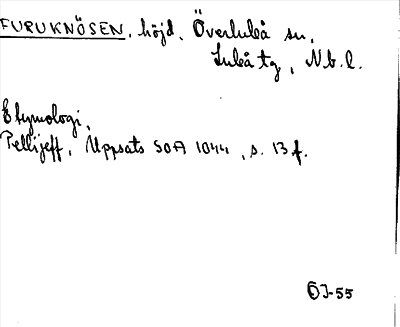 FURUKNÖSEN, höjd, Överluleå sn,
Luleå tg, Nb. l.
Etymologi,
Pellijeff, Uppsats SOFI 1044, s. 13 f.
ÖJ-55